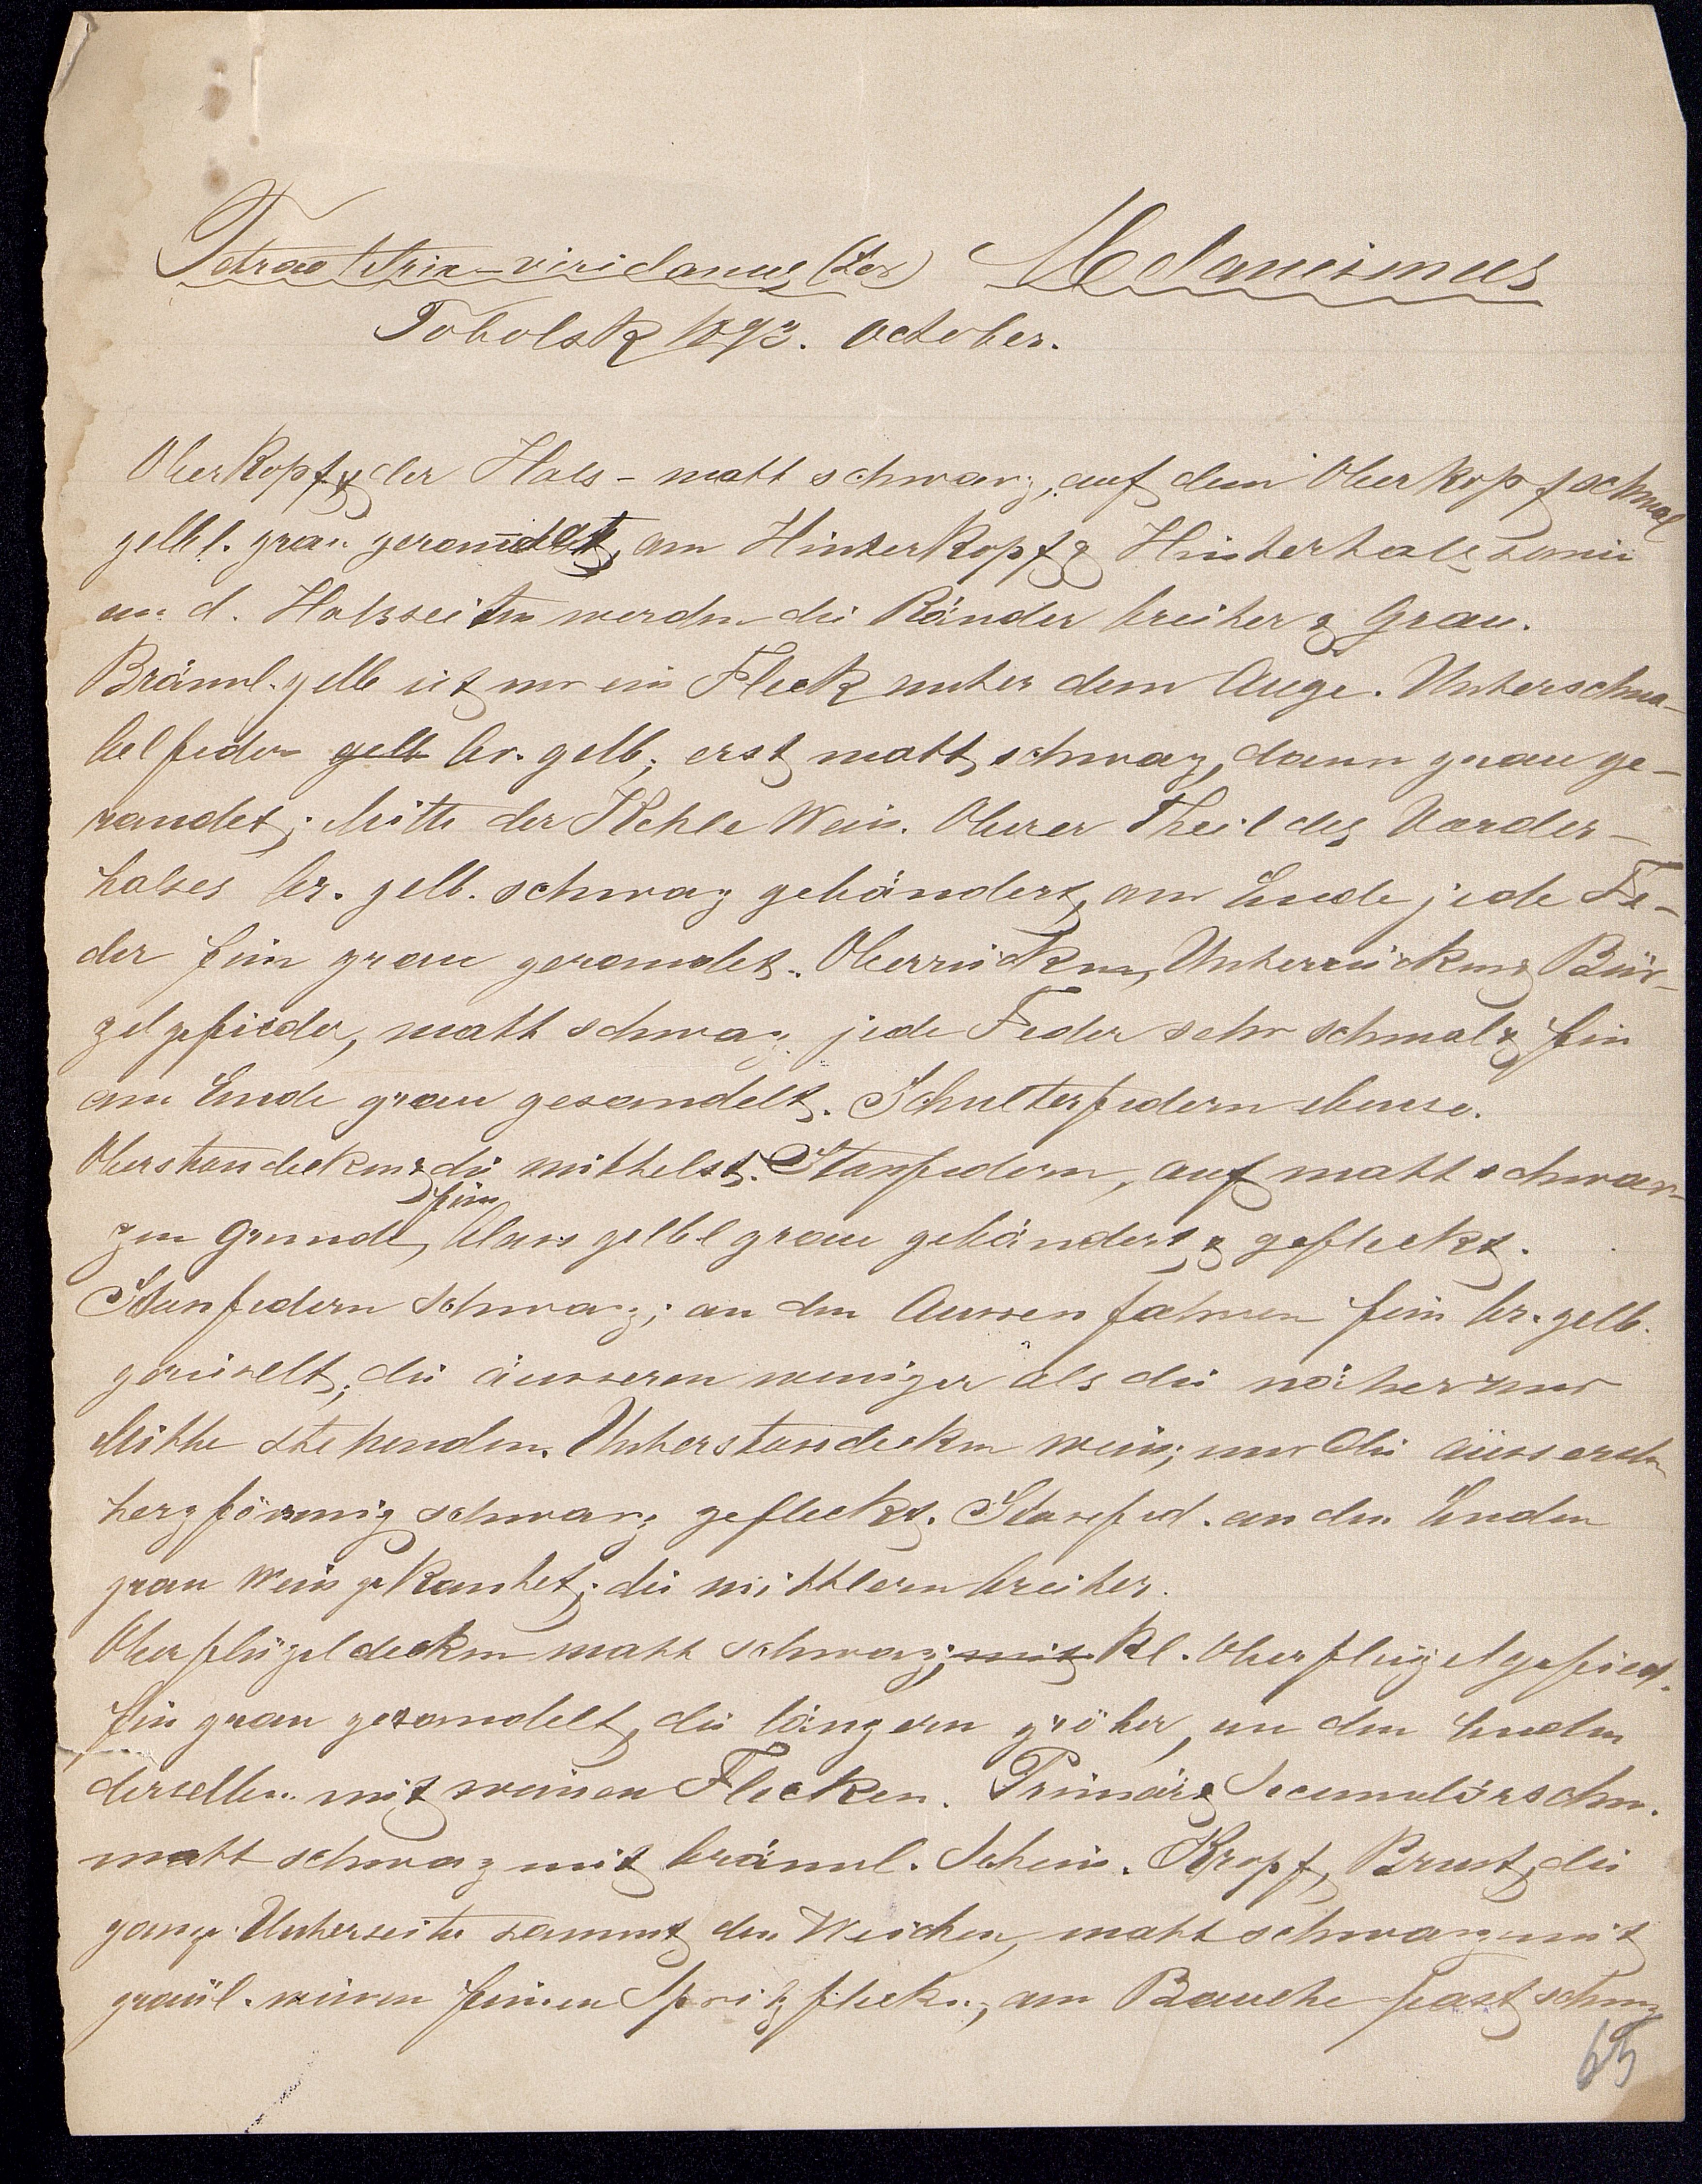 Tetrao tetrix-viridanus (Lor) Melanismus
Tobolsk 1893. October.
Oberkopf & der Hals - matt schwarz, auf dem Oberkopf schmal
gelbl. grau gerandet, am Hinterkopf & Hinterhals sowie
an d. Halsseiten werden die Ränder breiter & Grau.
Bräunl. gelb ist nur ein Fleck unter dem Auge. Unterschna-
belfedern gelb br. gelb, erst matt schwarz, dann grau ge-
randet; Mitte der Kehle Weis. Oberer Theil des Vorder-
halses br. gelb. schwarz gebändert, am Ende jede Fe-
der fein grau gerandet. Oberrücken, Unterrücken & Bür-
zelgefieder, matt schwarz jede Feder sehr schmal & fein
am Ende grau gesandelt. Schulterfedern ebenso.
Oberstossdecken & die mittelst. Stossfedern, auf matt schwar-
zen Grunde, fein blass gelbl grau gebändert & gefleckt.
Stossfedern schwarz; an den Aussenfahnen fein br. gelb.
gerieselt; die äusseren weniger als die näher zur
Mitte stehenden. Unterstossdecken weiss; nur die äussersten
herzförmig schwarz gefleckt. Stossfed. an den Enden
grau weiss gekantet; die mittleren breiter.
Oberflügeldecken matt schwarz; mit kl. Oberflügelgefied.
fein grau gesandelt, die längern gröber, an den Enden
derselben mit weissen Flecken. Primär & Secundärschw.
matt schwarz mit bräunl. Schein. Kropf, Brust, die
ganze Unterseite sammt den Weichen, matt schwarz mit
graul. weissen feinen Spritzflecken, am Bauche fast schwarz
65